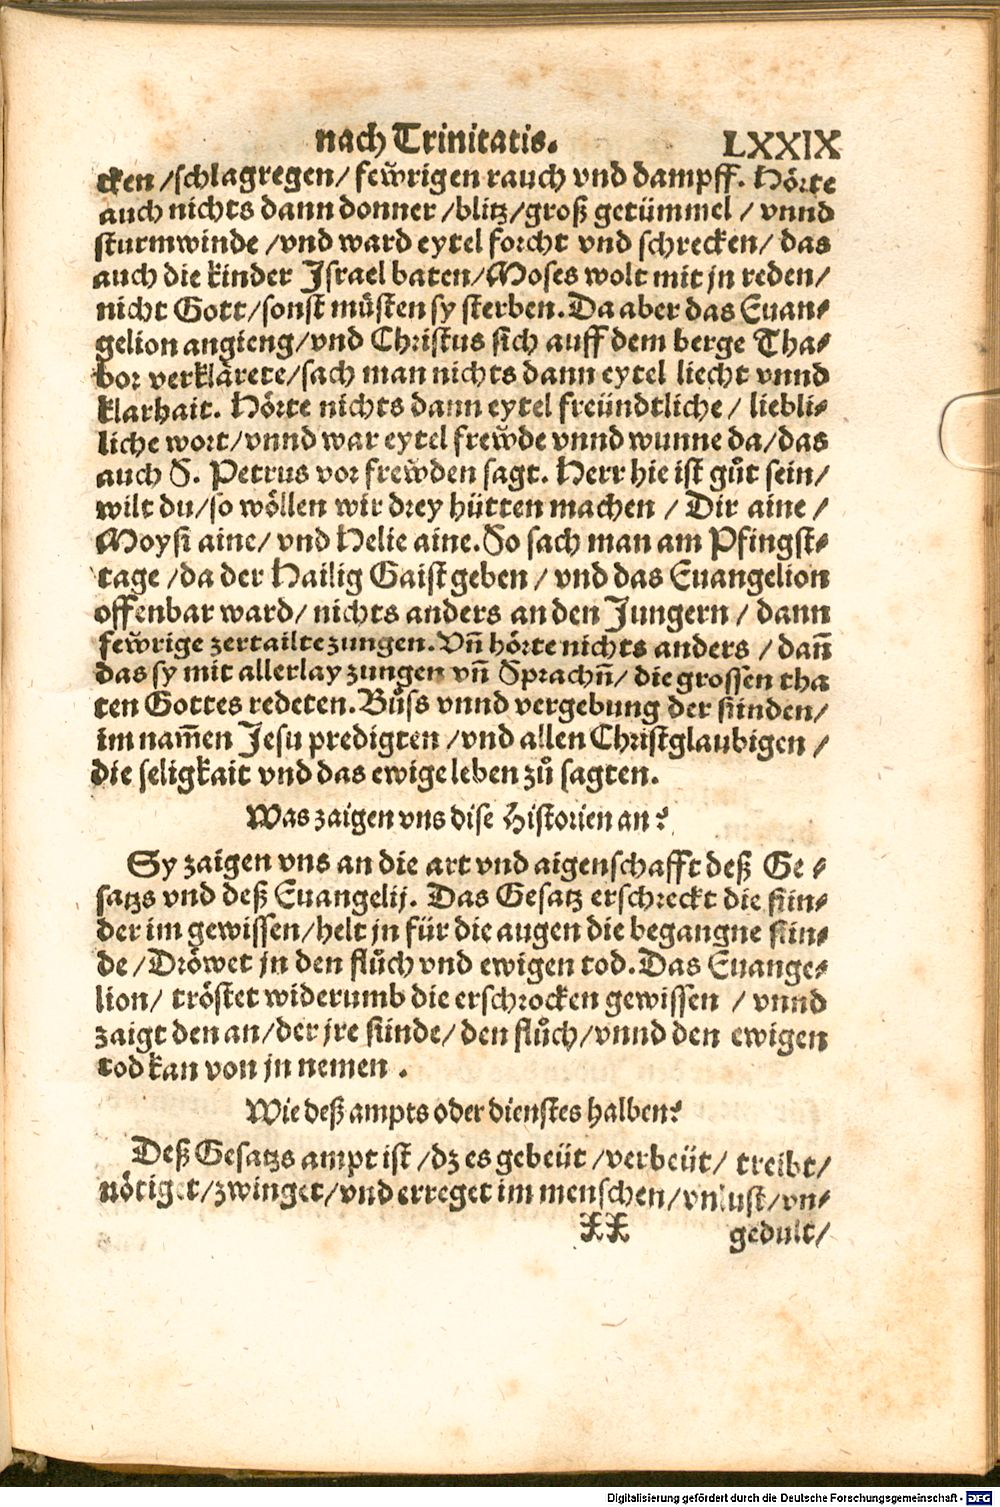 nach Trinitatis. LXXIX
cken /schlagregen/ fewͤrigen rauch vnd dampff. Hoͤrte
auch nichts dann donner /blitz/groß getümmel / vnnd
sturmwinde /vnd ward eytel forcht vnd schrecken/ das
auch die kinder Jsrael baten/Moses wolt mit jn reden/
nicht Gott/sonst muͤsten sy sterben. Da aber das Euan⸗
gelion angieng/vnd Christus sich auff dem berge Tha⸗
bor verklaͤrete/sach man nichts dann eytel liecht vnnd
klarhait. Hoͤrte nichts dann eytel freündtliche / liebli⸗
liche wort/vnnd war eytel frewͤde vnnd wunne da/das
auch S. Petrus vor frewͤden sagt. Herr hie ist guͦt sein/
wilt du/so woͤllen wir drey hütten machen / Dir aine /
Moysi aine/ vnd Helie aine. So sach man am Pfingst⸗
tage /da der Hailig Gaist geben / vnd das Euangelion
offenbar ward/ nichts anders an den Jungern / dann
fewͤrige zertailte zungen. Vn̄ hoͤrte nichts anders / dan̄
das sy mit allerlay zungen vn̄ Sprachn̄/ die grossen tha
ten Gottes redeten. Buͦss vnnd vergebung der sünden/
im nam̄en Jesu predigten /vnd allen Christglaubigen /
die seligkait vnd das ewige leben zuͦ sagten.
Was zaigen vns dise Historien an?
Sy zaigen vns an die art vnd aigenschafft deß Ge⸗
satzs vnd deß Euangelij. Das Gesatz erschreckt die sün⸗
der im gewissen/helt jn für die augen die begangne sün⸗
de /Droͤwet jn den fluͦch vnd ewigen tod. Das Euange⸗
lion/ troͤstet widerumb die erschrocken gewissen / vnnd
zaigt den an/der jre sünde/ den fluͦch/vnnd den ewigen
tod kan von jn nemen .
Wie deß ampts oder dienstes halben?
Deß Gesatzs ampt ist /dz es gebeüt /verbeüt/ treibt/
noͤtiget/zwinget/vnd erreget im menschen/vnlust/vn⸗
XX gedult/
Digitalisierung gefördert durch die Deutsche Forschungsgemeinschaft - DFG